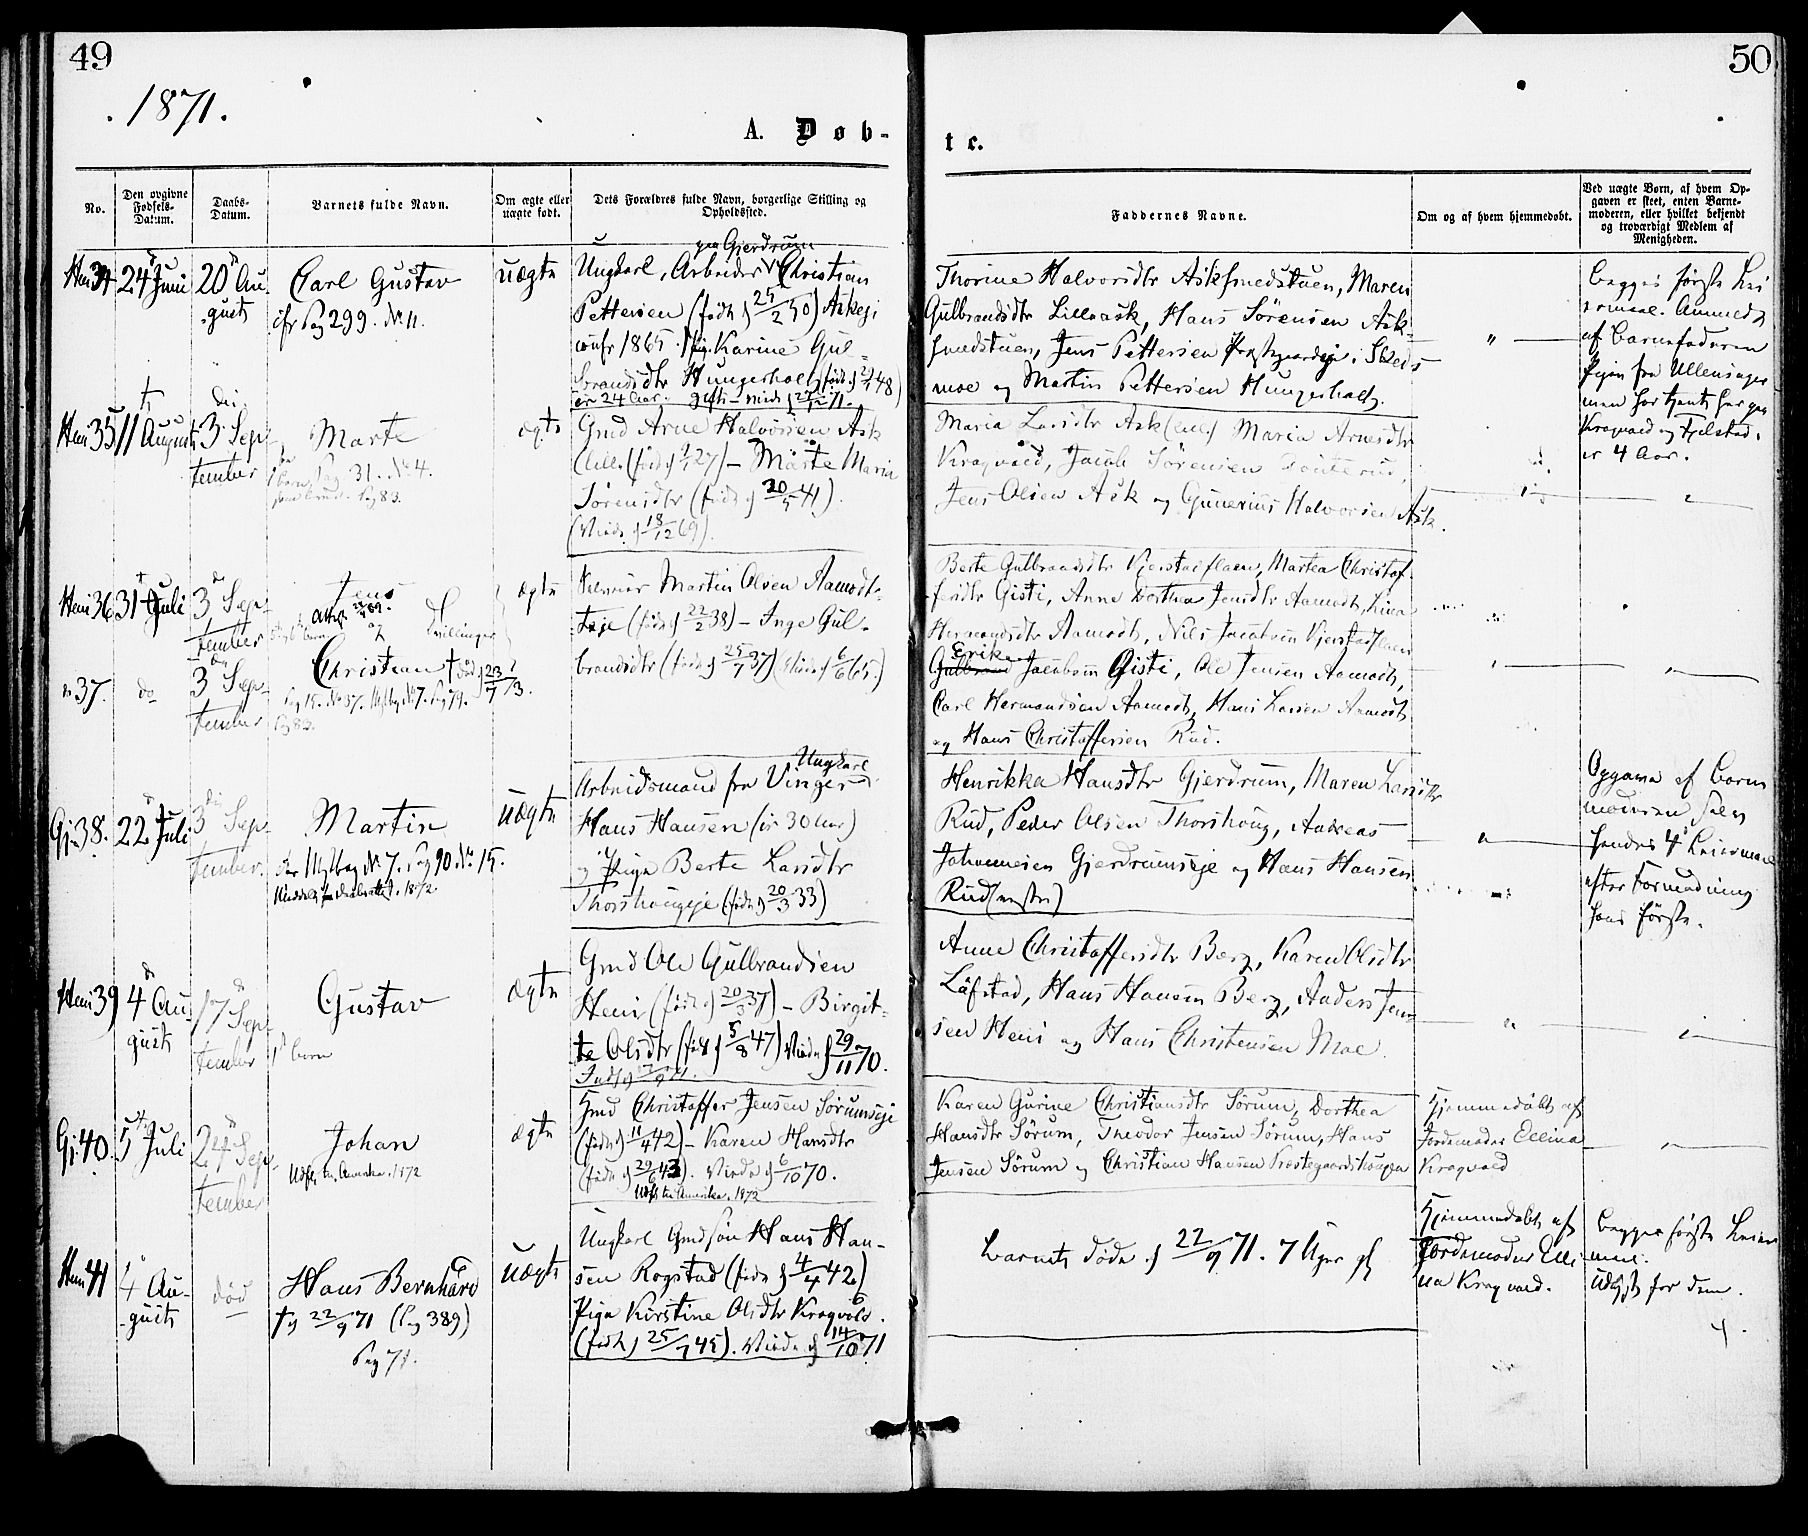 49
50
. 1871.
A. Døb-
te.
No.
Den opgivne
Fødsels-
Datum.
Daabs-
Datum.
Barnets fulde Navn.
Om ægte eller
uægte født.
Dets Forældres fulde Navn, borgerlige Stilling og
Opholdssted.
Faddernes Navne.
Om og af hvem hjemmedøbt.
Ved uægte Børn, af hvem Op-
gaven er skeet, enten Barne-
moderen, eller hvilket bekjendt
og troværdigt Medlem af
Menigheden.
34
24 Juni
20 Au-
gusts
Carl Gustav
cfr Pag 299. No 11.
uægte
Gjerdrum
Ungkarl, Arbeider Christian
Pettersen (født d 25/2 50) Askeji
conf 1865. Pig. Karine Gul-
brandsdtr Hungerholt
er 24 Aar. gift
Thorine Halvorsdtr Asksmedstuen, Maren
Gulbrandsdtr Lilleask, Hans Sörensen Ask-
smedstuen, Jens Pettersen i Skeds-
moe og Martin Pettersen Hungerholt.
"
begges første Lei
ermaal. Anmeldt
af Barnefaderen
Pigen fra Ullensager
men har tjent her paa
Kragvold og Fjelstad
er 4 Aar.
35
11 August
3 Sep-
tember
Marte
Pag 31. No 4.
Pag 83.
ægte
Gmd Arne Halvorsen Ask
lille (født d 27) – Marte Maria
Sörensdtr (født d 20/5 41).
(Viede d 18/12 69).
Maria Larsdtr Ask Maria Arnesdtr
Kragvold, Jacob Sörensen
Jens Olsen Ask og Gunerius Halvorsen Ask.
36
31 Juli
3 Sep-
tember
Jens
Tvillinger
ægte
Martin Olsen Aamodt-
eje (født d 22/2 38) – Inge Gul-
brandsdtr (født d 25/7 37) (Viede d 6/6 65.)
Berte Gulbrandsdtr Kjerstadflaen, Martea Christof-
fersdtr Gisti, Anne Dorthea Jensdtr Aamodt, Lina
Hermandsdtr Aamodt, Nils Jacobsen Kjerstadflaen
Erik
Gulbrand Jacobsen Gisti, Ole Jensen Aamodt,
Carl Hermandsen Aamodt, Hans Larsen Aamodt
og Hans Christoffersen Rud.
" 37.
do
3 Sep-
tember
Christian † død d 23/7 73.
Pag 83.
Gj. 38.
22 Juli
3 Sep-
tember.
Martin
No 7. Pag 90. No 15.
1872.
uægte
Ungkarl
Arbeidsmand fra Vinger
Hans Hansen (er 30 Aar)
og Pige Berte Larsdtr
Thorshougeje (født d 20/3 33)
Henrikka Hansdtr Gjerdrum, Maren Larsdtr
Rud, Peder Olsen Thorshoug, Andreas
Johannesen Gjerdrumseje og Hans Hansen
Rud
Opgave af Barne
moderen selv
hendes 4d Leiermaal
efter Formodning
hans første.
39
4 Au-
gusts
17 Sep-
tember
Gustav
1st barn
ægte
Gmd Ole Gulbrandsen
Heni (født d 20/3 37) – Birgit-
te Olsdtr (født d 5/8 47) Viede d 29/11 70.
Anne Christoffersdtr Berg, Karen Olsdtr
Löfstad, Hans Hansen Berg, Anders Jen-
sen Heni og Hans Christensen Moe.
Gj. 40.
5 Juli
24 Sep-
tember
Johan
Udfl. til Amerika. 1872
ægte
Gmd Christoffer Jensen Sörumseje
(født d 11/4 42) – Karen Hansdtr
(født d 29/6 43). Viede d 6/10 70.
Udfl. til Amerika. 1872
Karen Gurine Christiansdtr Sörum, Dorthea
Hansdtr Sörum, Theodor Jensen Sörum, Hans
Jensen Sörum og Christian Hansen
Hjemmedøbt af
Jordemoder Ellina
Kragvold
41
4 Au-
gusts
død
Hans Bernhard
† d 22/9 71 (Pag 389)
Pag 71.
uægte
Ungkarl Gmdsøn Hans Han-
sen Rogstad (født d 4/4 42)
Pige Kirstine Olsdtr Kragvold.
(født d 25/7 45). Viede d 14/10 71
Barnet døde d 22/9 71. 7 Uger gl
Hjemmedøbt af
Jordemoder Elli
na Kragvold.
begges første Leier
maal.
Udlagt for dem.